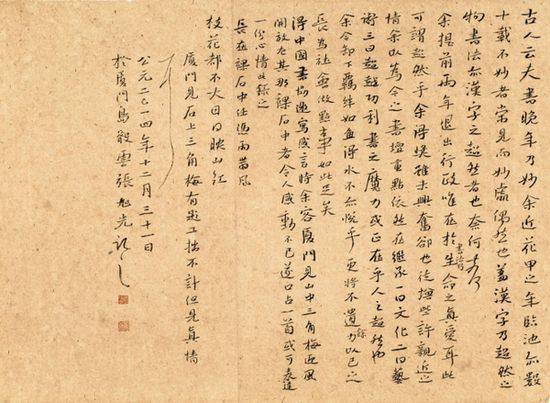 古人云夫書晚年乃妙余近花甲之年臨池亦数
十載不妙者常見而妙處偶然也蓋漢字乃超然之
物書法亦漢字之超然者也奈何
余提前兩年退出行政唯在於生命之真愛耳此
可謂超然乎余得興奮卻也徒增些許親近之
情余以為今之書壇重點依然在継承一曰文化二曰藝
術三曰超越功利書之魔力或正在乎人之超然也
余今卸下羈絆如魚得水不亦悦乎更将不遺餘力以己之
長為社會做點事如此足矣
得中國書協邀寫感言時余客厦門見山中三角梅迎風
開放尤其那裸石中者令人感動不已遂口占一首或可表達
一份心情录之
長在裸石中任憑雨風
枝花都不大自曰映山红
厦門見石上三角梅有题工拙不計但見真情
公元二〇一四年十二月三十一日
於厦門張旭光記之